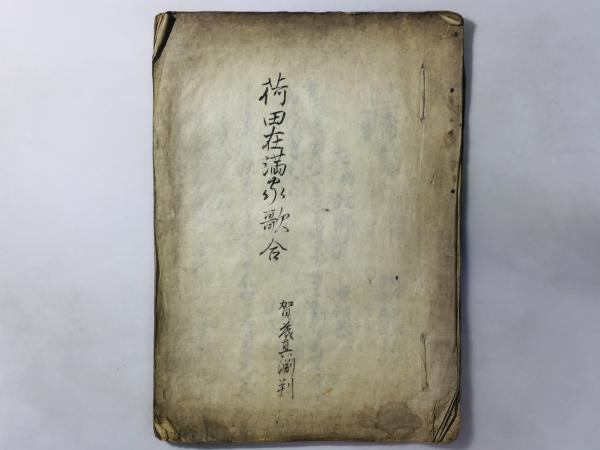 荷田在満家歌合
賀茂真渕判